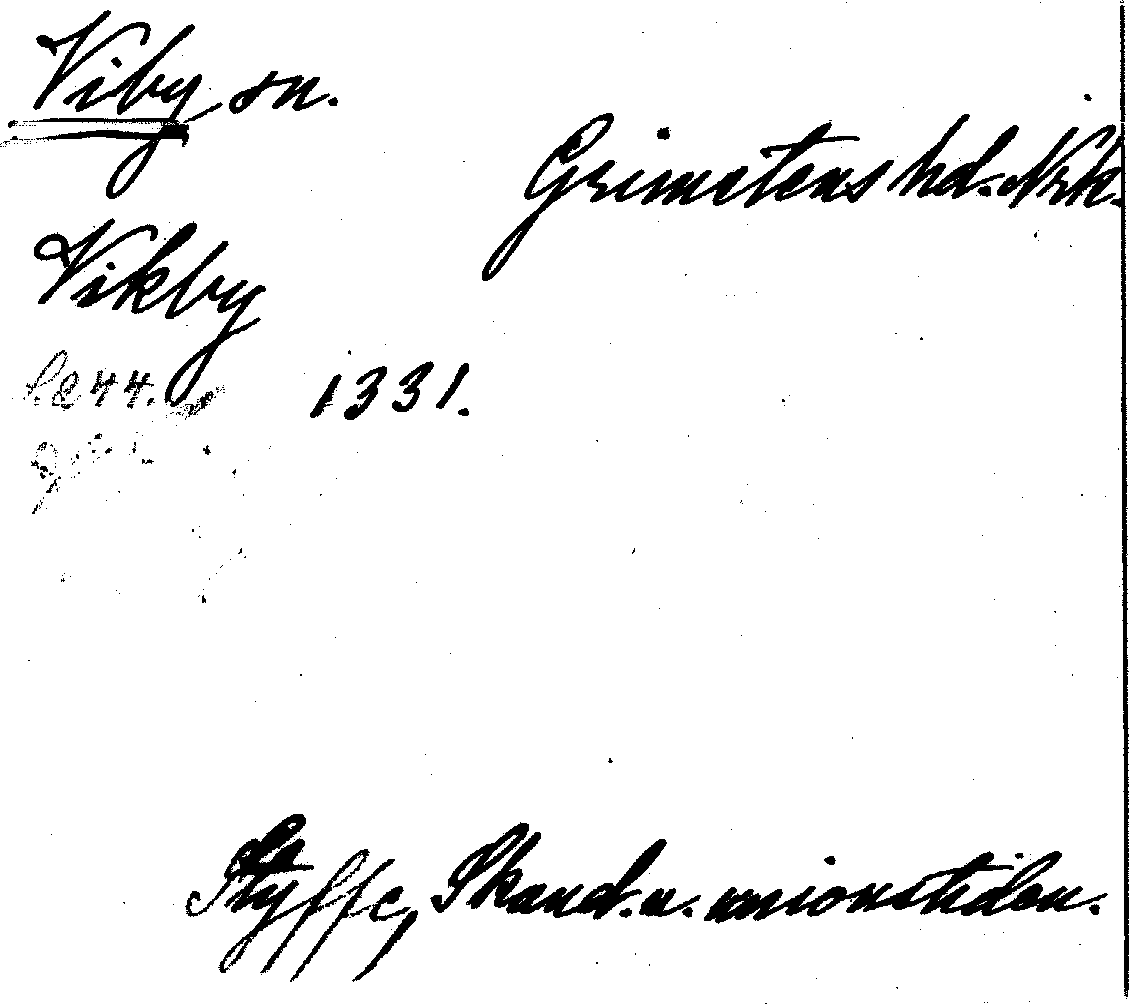 Viby sn.
Grimstens hd. Nrk.
Vikby
1331.
Styffe, Skand. u. unionstiden.